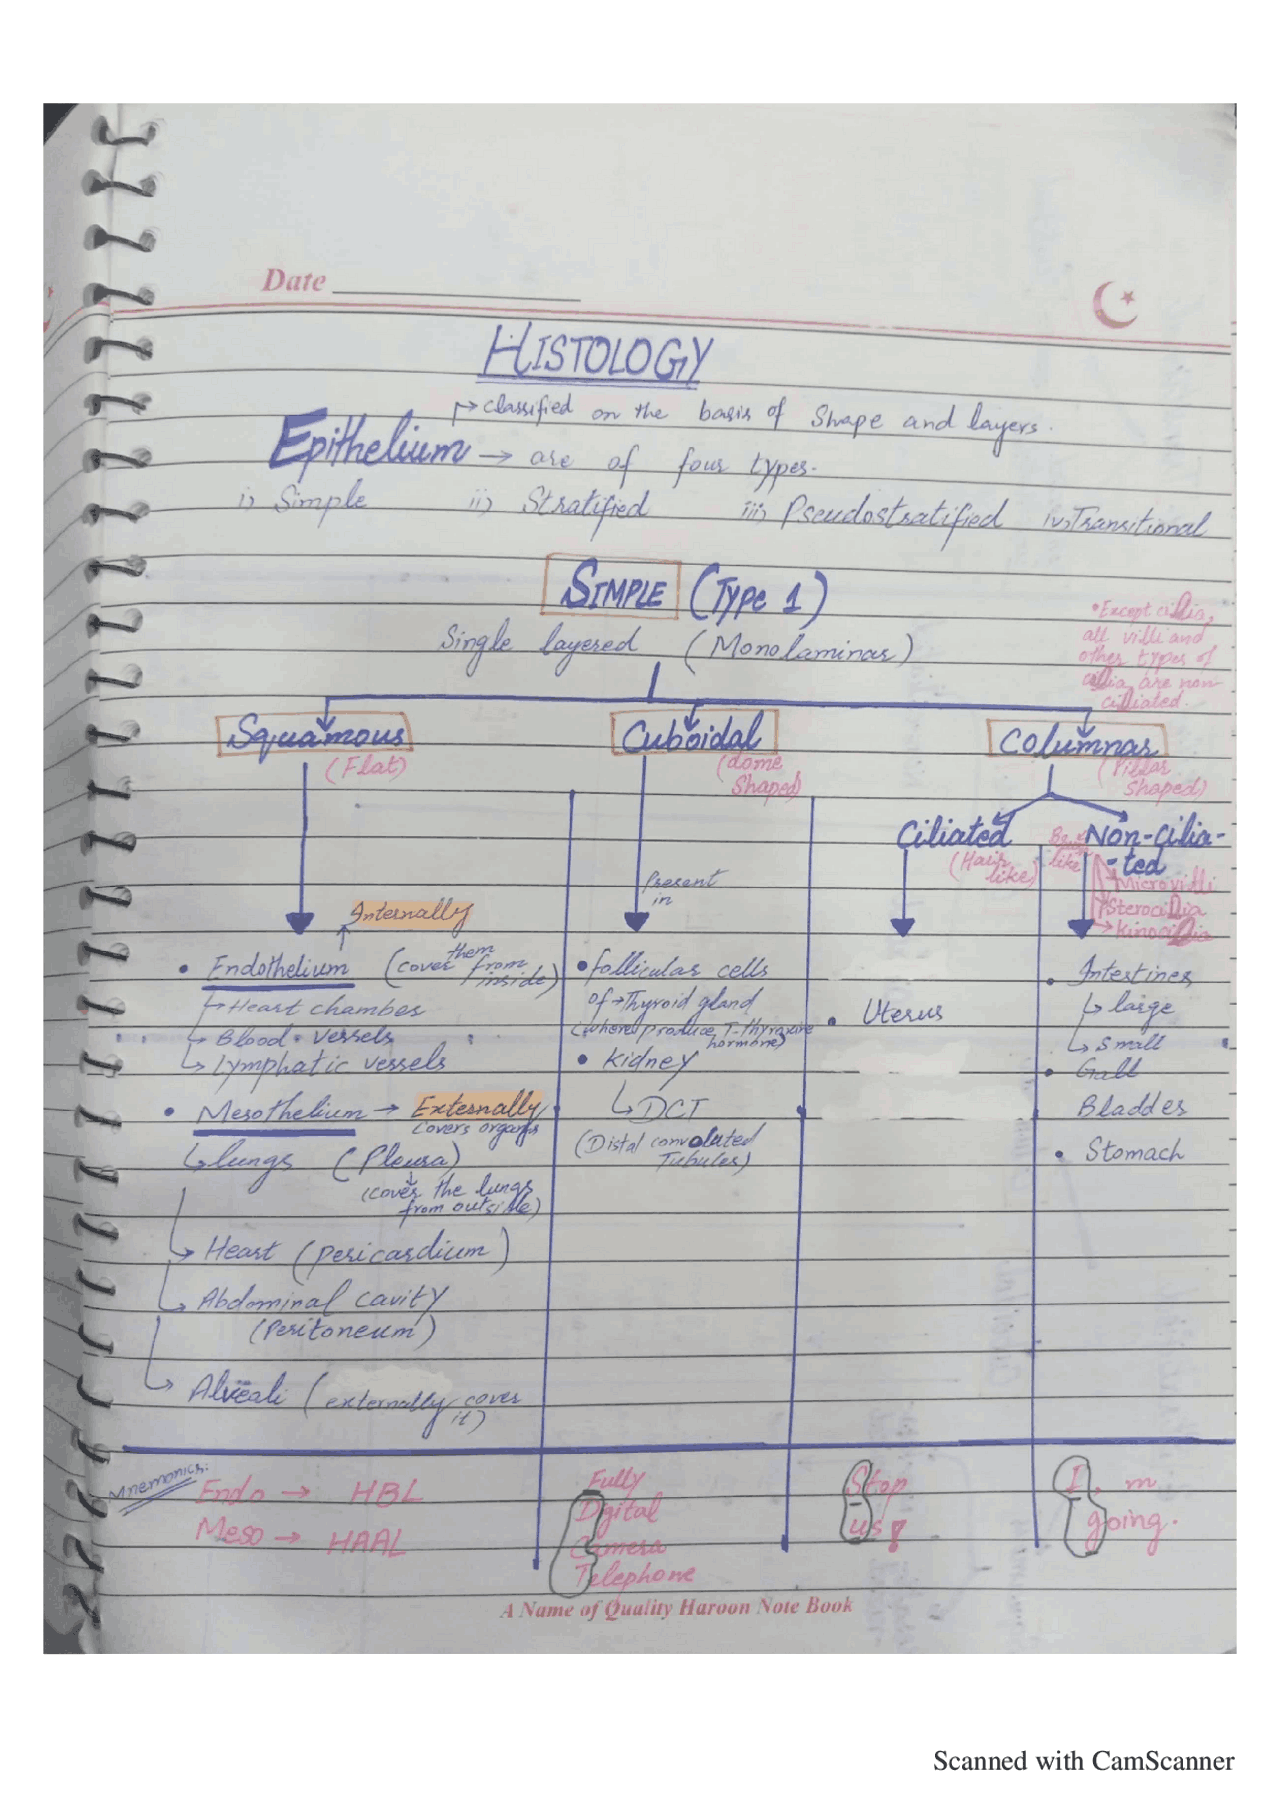 Date
HISTOLOGY
→ classified on the basis of shape and layers.
Epithelium → are of four types.
i) Simple ii) Stratified iii) Pseudostratified iv) Transitional
SIMPLE (Type 1)
Single layered (Monolaminar)
• Except cillia,
all villi and
other types of
cillia are non-
cilliated.
Squamous
(Flat)
Cuboidal
(dome
Shaped)
Columnar
(Pillar
shaped)
Ciliated
(Hair
like)
Non-cilia-
-ted
like
Microvilli
Sterocillia
→ kinocillia
Internally
• Endothelium (cover them from
inside)
↳ Heart chambers
↳ Blood vessels
↳ Lymphatic vessels
• Mesothelium → Externally
covers organs
↳ lungs (Pleura)
(cover the lungs
from outside)
↳ Heart (pericardium)
↳ Abdominal cavity
(Peritoneum)
↳ Alveoli (externally cover
it)
Present
in
• follicular cells
of → Thyroid gland
(where produce T-thyroxine
hormone)
• kidney
↳ DCT
(Distal convoluted
Tubules)
• Uterus
• Intestines
↳ large
↳ small
• Gall
Bladder
• Stomach
Mnemonics:
Endo → HBL
Meso → HAAL
Fully
Digital
Camera
Telephone
Stop
us!
I, m
going.
A Name of Quality Haroon Note Book
Scanned with CamScanner